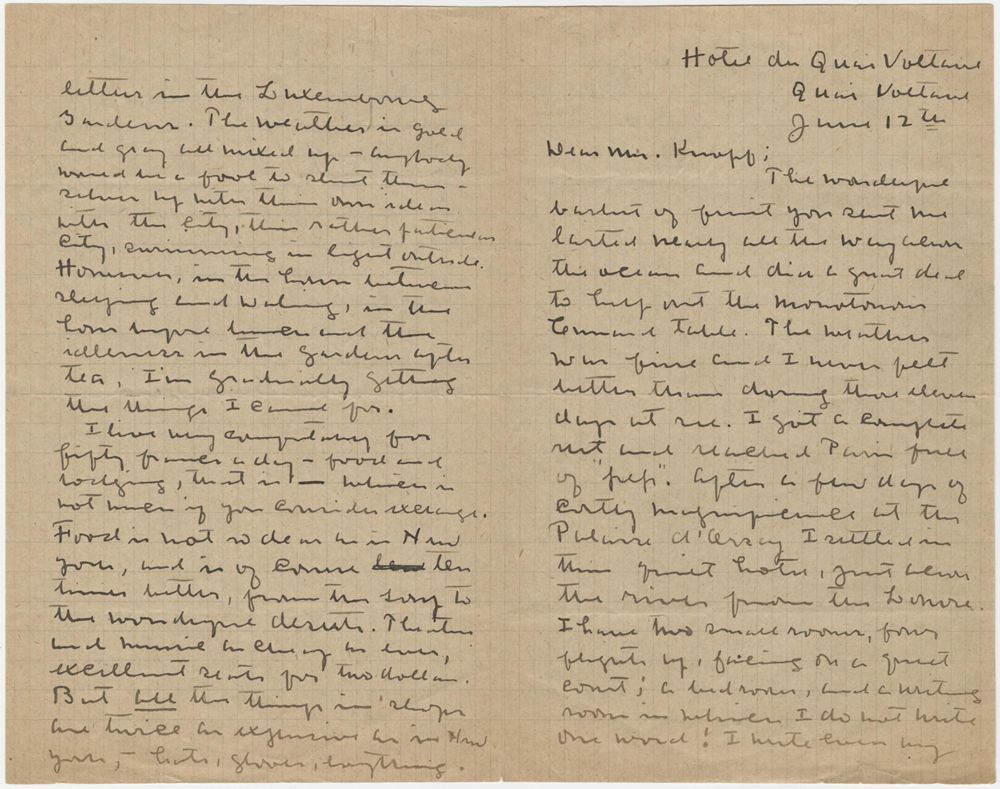 Hotel du Quai Voltaire
Quai Voltaire
June 12th
Dear Mr. Knopf;
The wonderful
basket of fruit you sent me
lasted nearly all the way across
the ocean and did a great deal
to help out the monotonous
Cunard table. The weather
was fine and I never felt
better than during those eleven
days at sea. I got a complete
rest and reached Paris full
of "pep". After a few days of
costly magnificence at the
Palaise d'Orsay I settled in
this quiet hotel, just across
the river from the Louvre.
I have two small rooms, four
flights up, facing on a quiet
court; a bedroom, and a writing
room in which I do not write
one word! I write even my
letters in the Luxembourg
Gardens. The weather is gold
and gray all mixed up - anybody
would be a fool to shut them-
selves up with their own ideas
with the city, this rather
city, swimming in light outside.
However, in the hours between
sleeping and waking, in the
hours and the
idleness in the gardens after
tea, I'm gradually getting
the things I came for.
I live very comfortably for
fifty francs a day - food and
lodging, that is - which is
not much if you consider exchange.
Food is not so dear as in New
York, and is of course ten
times better, from the soup to
the wonderful deserts. Theatres
and music as cheap as ever,
excellent seats for two dollars.
But all the things in shops
are twice as expensive as in New
York, - hats, gloves, everything.